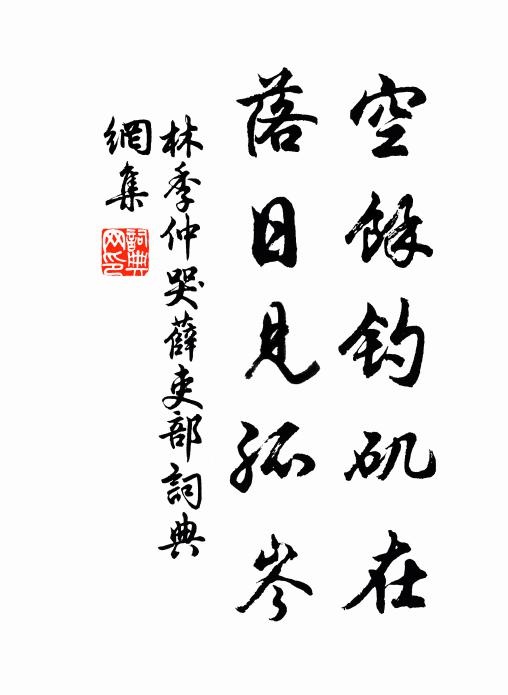 空餘釣矶在
落日見孤岑
林季仲哭薛吏部詞典
網集
詞典
网印